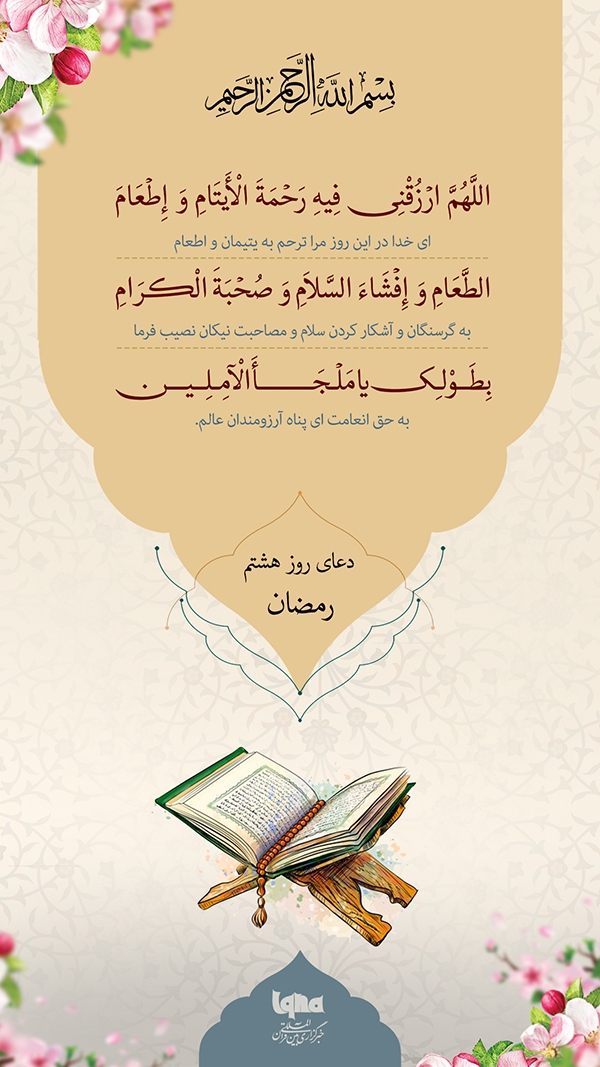 بِسْمِ اللَّهِ الرَّحْمَنِ الرَّحِيمِ
اللَّهُمَّ ارْزُقْنِی فِیهِ رَحْمَةَ الْأَیتَامِ وَ إِطْعَامَ
ای خدا در این روز مرا ترحم به یتیمان و اطعام
الطَّعَامِ وَ إِفْشَاءَ السَّلاَمِ وَ صُحْبَةَ الْکرَامِ
به گرسنگان و آشکار کردن سلام و مصاحبت نیکان نصیب فرما
بِطَوْلِک یا مَلْجَأَ الْآمِلِین
به حق انعامت ای پناه آرزومندان عالم.
دعای روز هشتم
رمضان
iqna
خبرگزاری بین المللی قرآن